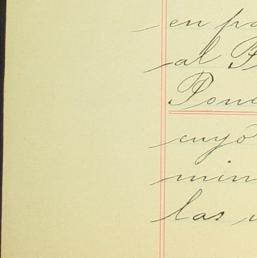 en pa
al P
Pone
cuyo
min
las